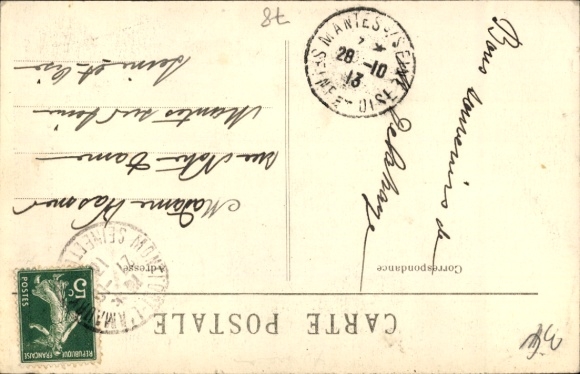 CARTE POSTALE
Correspondance
Adresse
Bons souvenirs de
Madame
rue Notre Dame
Mantes sur Seine
Seine et Oise
MANTES-S/SEINE
SEINE-ET-OISE
7 *
28 -10
13
21
5c
POSTES
REPUBLIQUE FRANÇAISE
78